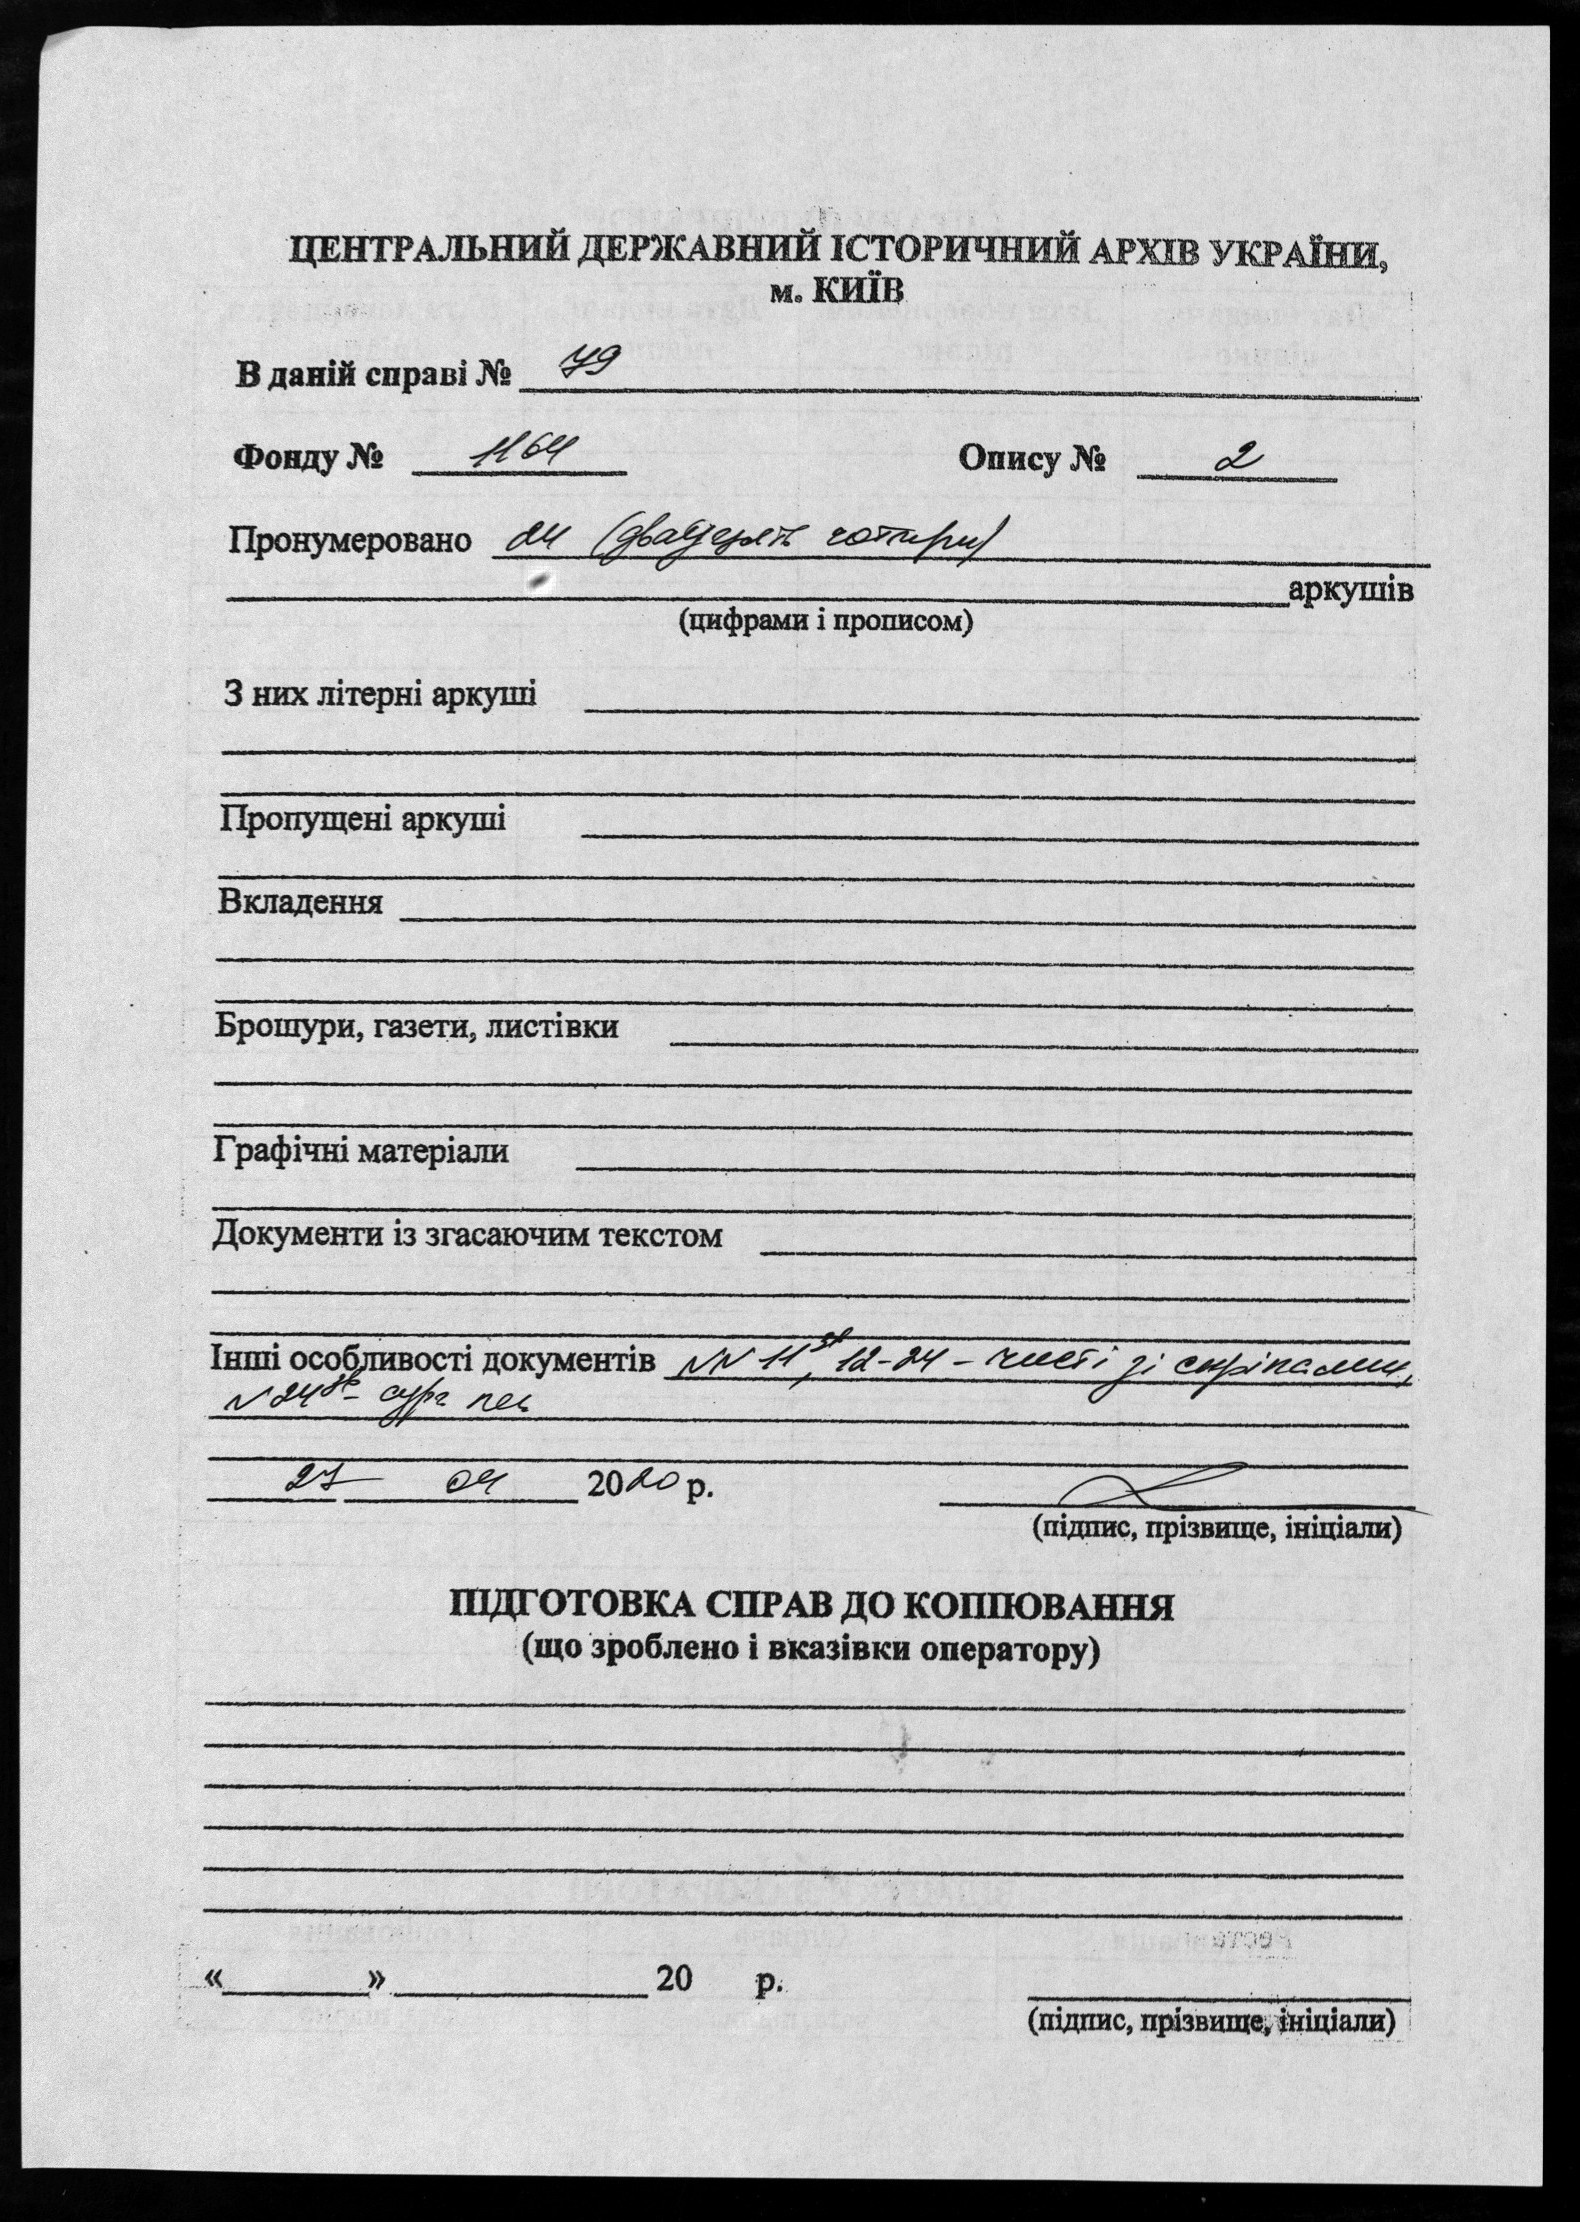 ЦЕНТРАЛЬНИЙ ДЕРЖАВНИЙ ІСТОРИЧНИЙ АРХІВ УКРАЇНИ,
м. КИЇВ
В даній справі № 79
Фонду № 1164 Опису № 2
Пронумеровано 24 (двадцять чотири)
аркушів
(цифрами і прописом)
З них літерні аркуші
Пропущені аркуші
Вкладення
Брошури, газети, листівки
Графічні матеріали
Документи із згасаючим текстом
Інші особливості документів №№ 11зв, 12-24 - чисті зі скріпами,
№24зв -
27 04 2020 р.
(підпис, прізвище, ініціали)
ПІДГОТОВКА СПРАВ ДО КОПІЮВАННЯ
(що зроблено і вказівки оператору)
«        »        20    р.
(підпис, прізвище, ініціали)